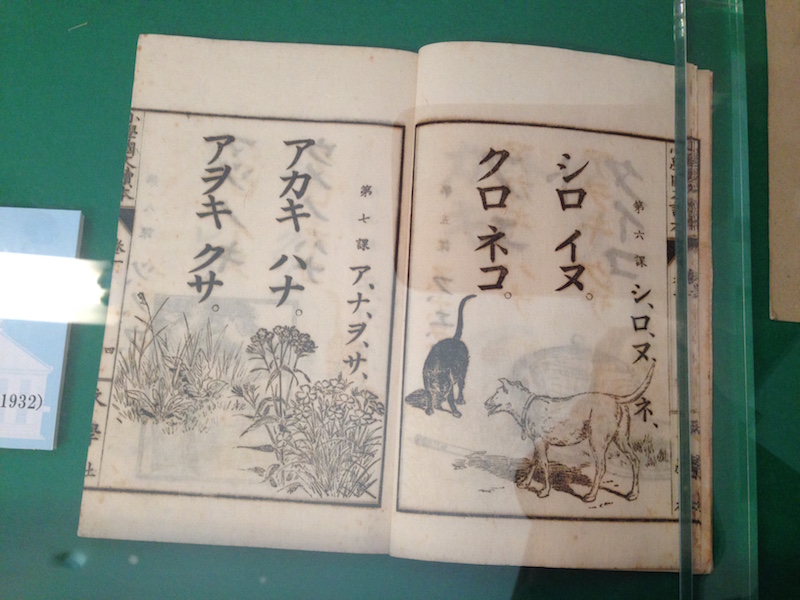 第六課 シ、ロ、ヌ、ネ、
シロ イヌ。
クロ ネコ。
第七課 ア、ナ、ヲ、サ、
アカキ ハナ。
アヲキ クサ。
巻一
四
文學社
1932)